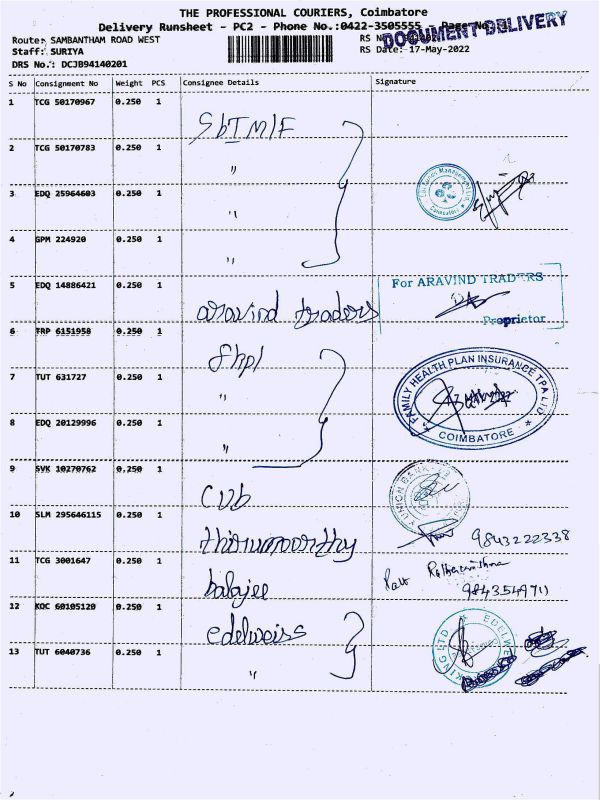 THE PROFESSIONAL COURIERS, Coimbatore
Delivery Runsheet - PC2 - Phone No.:0422-3505555 - Page No
DOCUMENT DELIVERY
Route: SAMBANTHAM ROAD WEST RS N
Staff: SURIYA RS Date: 17-May-2022
DRS No.: DCJB94140201
S No Consignment No Weight PCS Consignee Details Signature
1 TCG 50170967 0.250 1 SbIMIF
2 TCG 50170783 0.250 1 "
3 EDQ 25964603 0.250 1 "
4 GPM 224920 0.250 1 "
5 EDQ 14886421 0.250 1 aravind traders
For ARAVIND TRADERS
Proprietor
6 TRP 6151958 0.250 1 fhpl
7 TUT 631727 0.250 1 "
FAMILY HEALTH PLAN INSURANCE TPA LTD
COIMBATORE
8 EDQ 20129996 0.250 1 "
9 SVK 10270762 0.250 1 CUb
UNION BANK
10 SLM 295646115 0.250 1 thirumoorthy 9843222338
11 TCG 3001647 0.250 1 balajee 9843549711
12 KQC 60105120 0.250 1 edelweiss
13 TUT 6040736 0.250 1 "